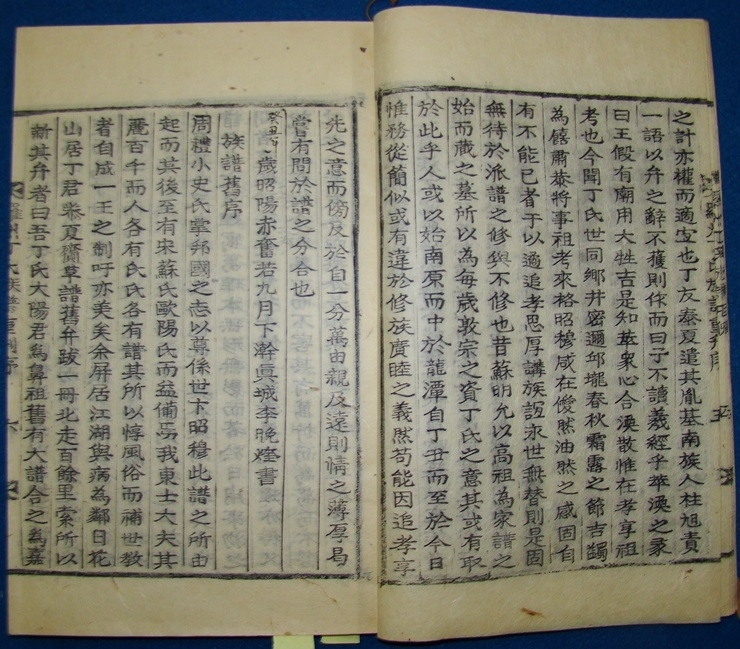 之計亦權而適宜也丁友泰夏遣其胤基南族人柱旭責
一語以弁之辭不獲則作而曰子不讀羲經乎萃渙之彖
曰王假有廟用大牲吉是知萃衆心合渙散惟在孝享祖
考也今聞丁氏世同鄕井密邇邱壠春秋霜露之節吉蠲
為饎肅恭將事祖考來格昭穆咸在僾然油然之感固自
有不能已者于以適追孝思厚講族誼永世無替則是固
無待於派譜之修與不修也昔蘇明允以高祖為家譜之
始而蕆之墓所以為每歲敦宗之資丁氏之意其或有取
於此乎人或以始南原而中於龍潭自丁丑而至於今日
惟務從簡似或有違於修族廣睦之義然苟能因追孝享
先之意而傍及於自一分萬由親及遠則情之薄厚曷
嘗有問於譜之分合也
癸丑歲昭陽赤奮若九月下澣眞城李晚煃書
族譜舊序
周禮小史氏掌邦國之志以尊係世卞昭穆此譜之所由
起而其後至有宋蘇氏歐陽氏而益備焉我東士大夫其
麗百千而人各有氏氏各有譜其所以惇風俗而補世敎
者自成一王之制吁亦美矣余屛居江湖與病為鄰日花
山居丁君泰夏齎草譜舊弁跋一冊北走百餘里索所以
新其弁者曰吾丁氏大陽君為鼻祖舊有大譜合之為嘉